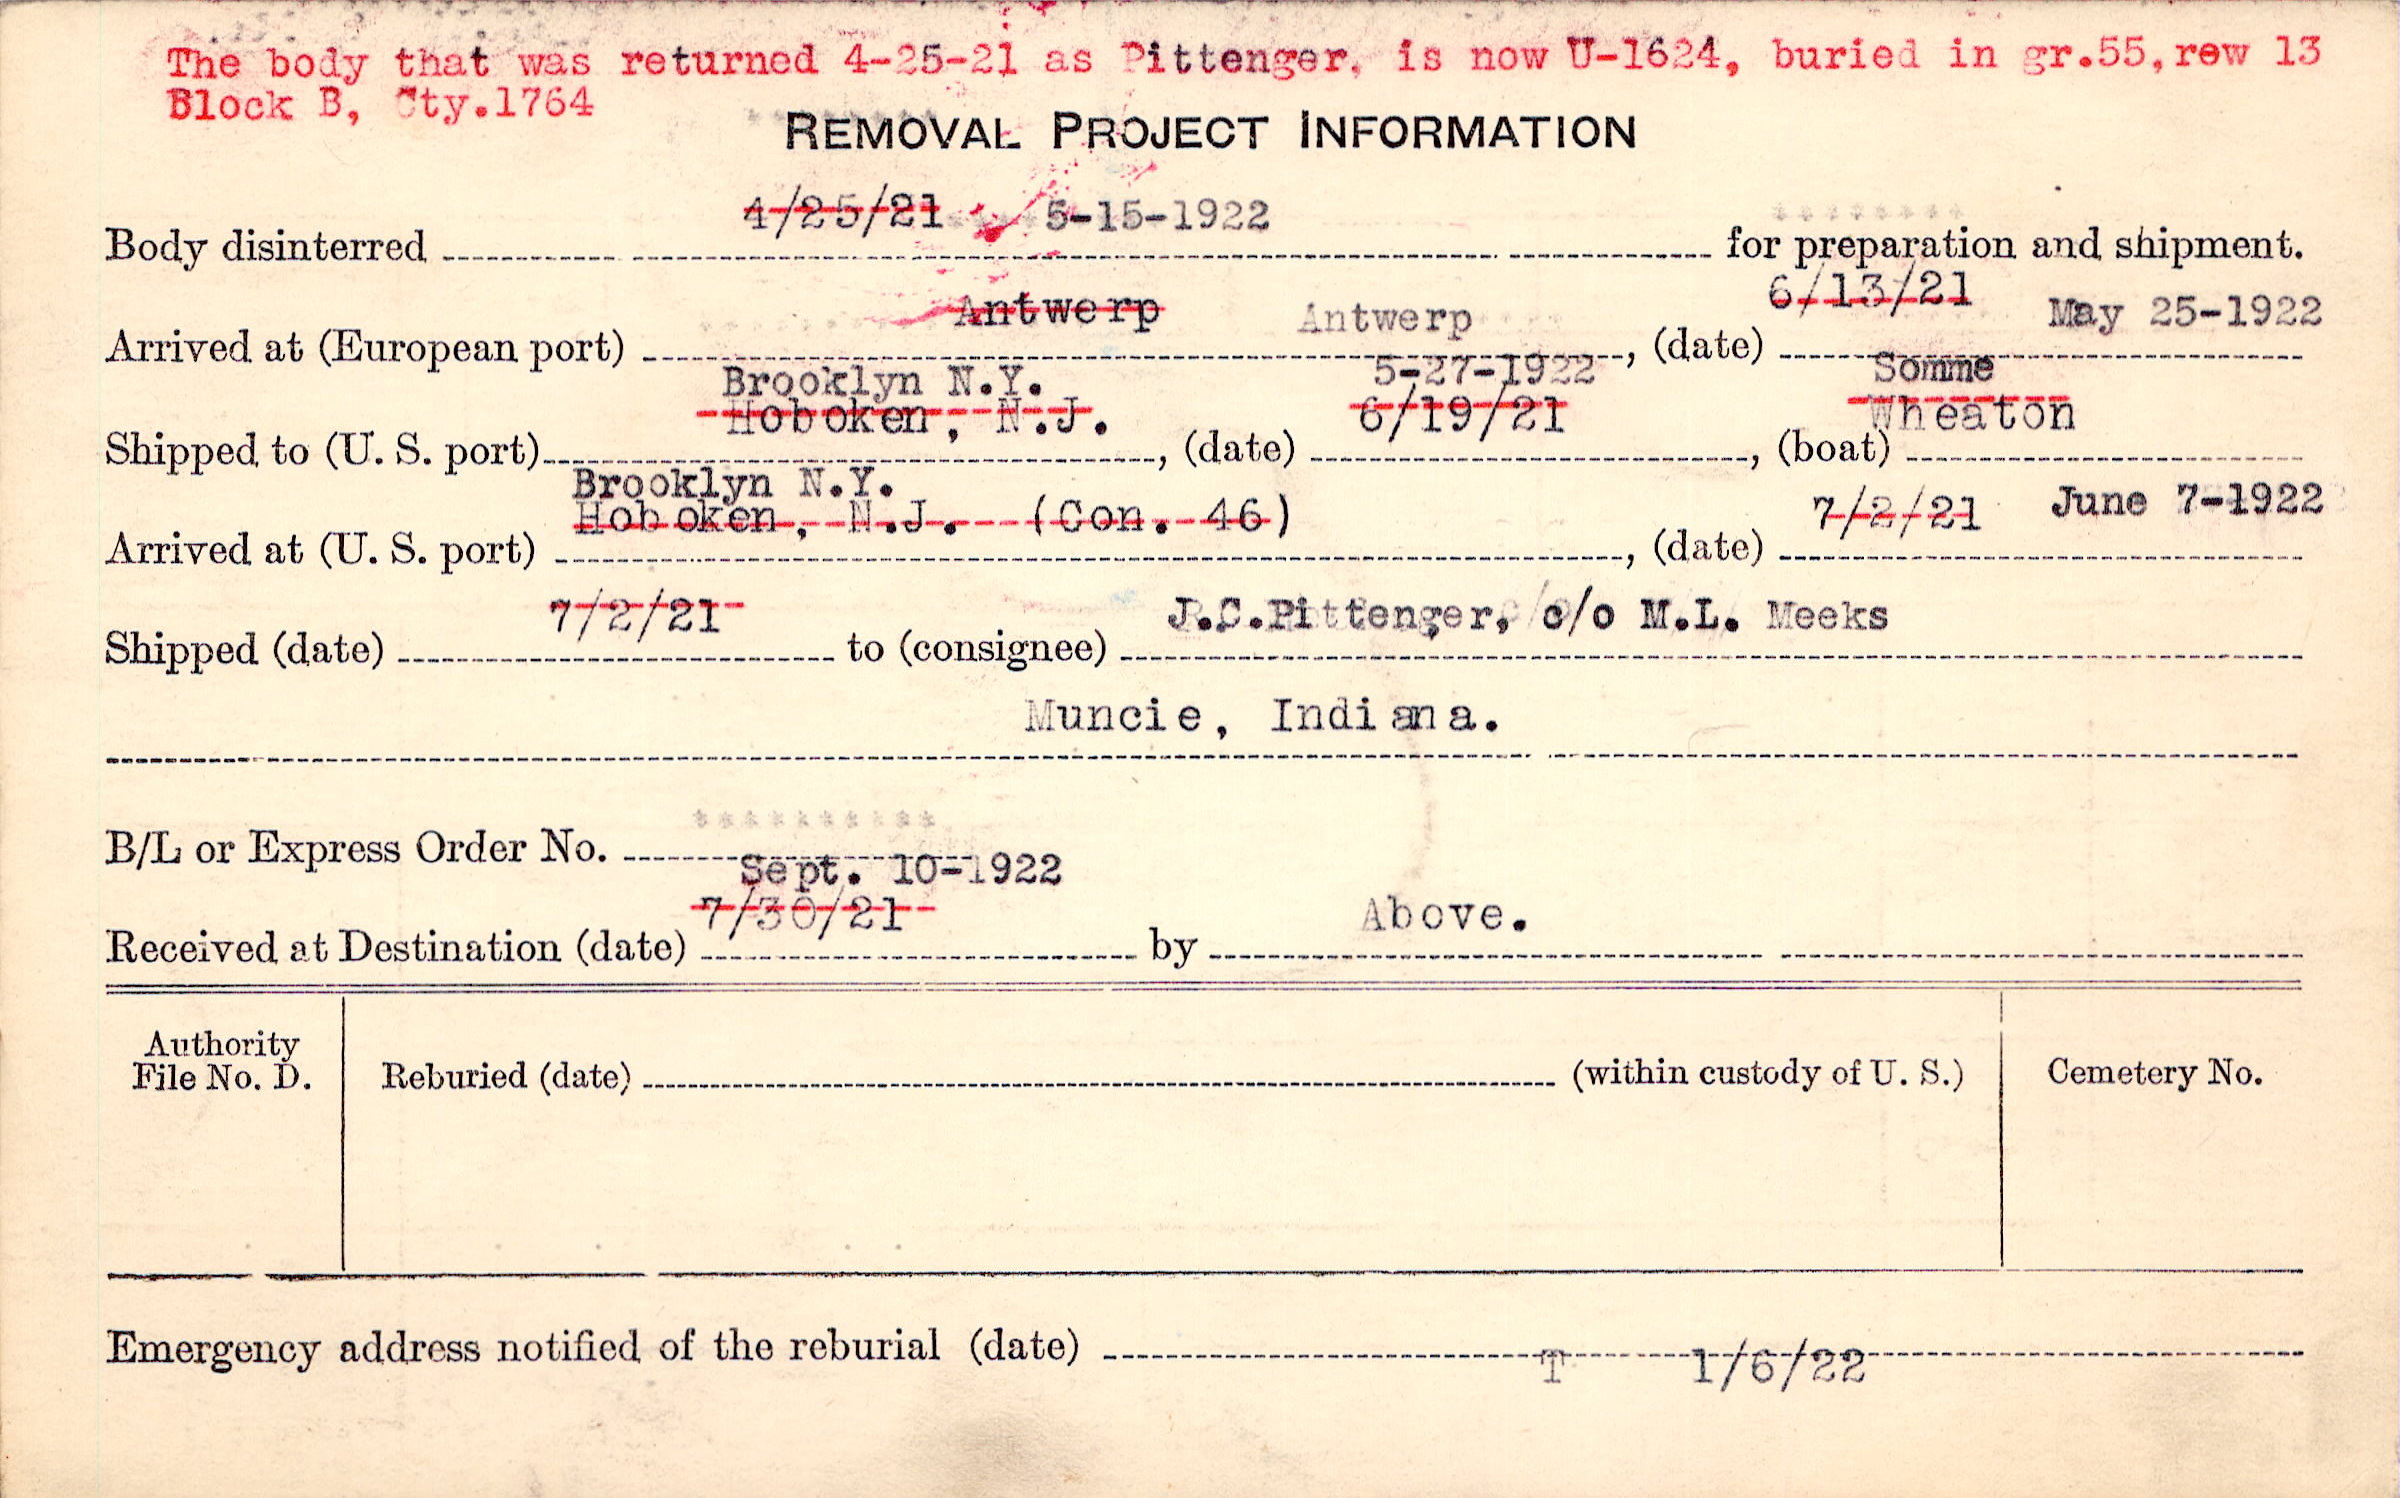 The body that was returned 4-25-21 as Pittenger, is now U-1624, buried in gr.55, row 13
Block B, Cty.1764
REMOVAL PROJECT INFORMATION
4/25/21 5-15-1922
Body disinterred for preparation and shipment.
Antwerp Antwerp 6/13/21 May 25-1922
Arrived at (European port) , (date)
Brooklyn N.Y. 5-27-1922 Somme
Hoboken, N.J. 6/19/21 Wheaton
Shipped to (U. S. port) , (date) , (boat)
Brooklyn N.Y.
Hoboken, N.J. (Con. 46) 7/2/21 June 7-1922
Arrived at (U. S. port) , (date)
7/2/21 J.C.Pittenger, c/o M.L. Meeks
Shipped (date) to (consignee)
Muncie, Indiana.
**********
B/L or Express Order No.
Sept. 10-1922
7/30/21 Above.
Received at Destination (date) by
Authority
File No. D. Reburied (date) (within custody of U. S.) Cemetery No.
Emergency address notified of the reburial (date) T 1/6/22